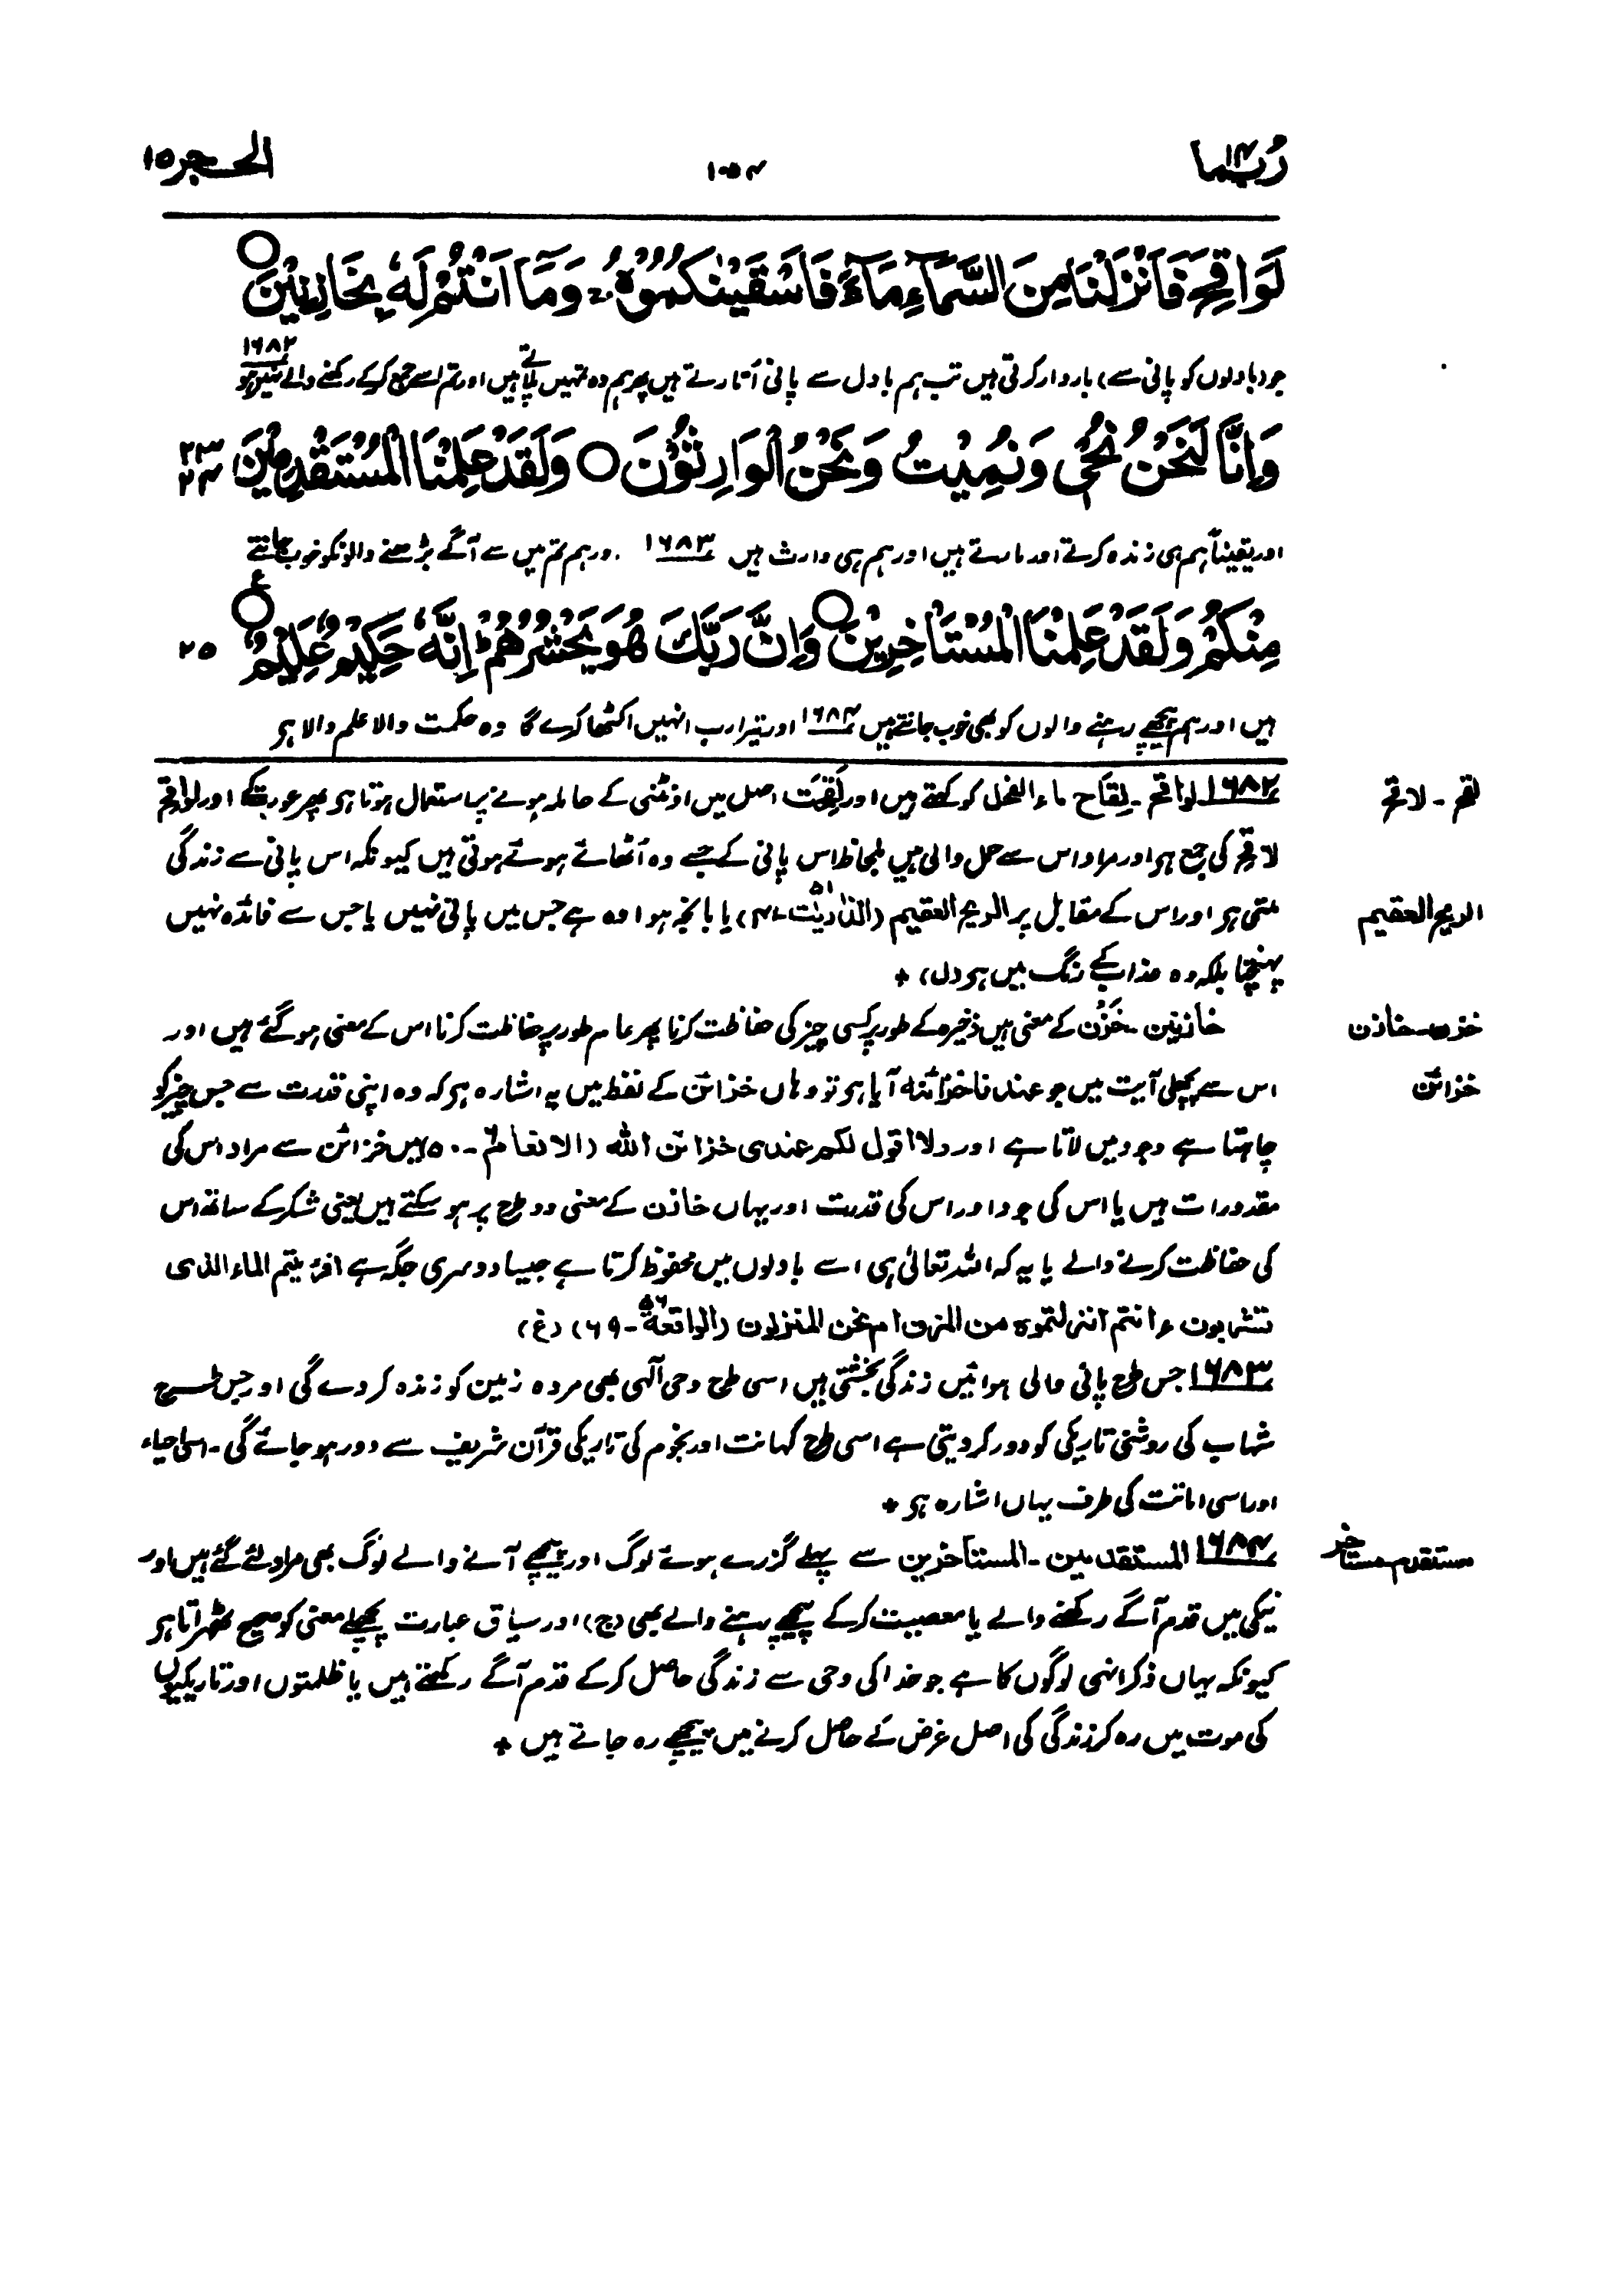 ربما ۱۴ ۱۰۵۴ الحجر ۱۵
لَوَاقِحَ فَاَنْزَلْنَا مِنَ السَّمَآءِ مَآءً فَاَسْقَيْنٰكُمُوْهُ ۚ وَمَآ اَنْتُمْ لَهٗ بِخَازِنِيْنَ ○
جو (بادلوں کو پانی سے) باردار کرتی ہیں تب ہم بادل سے پانی اُتارتے ہیں پھر ہم وہ تمہیں پلاتے ہیں اور تم اسے جمع کرکے رکھنے والے نہیں ہو ۱۶۸۲
وَاِنَّا لَنَحْنُ نُحْيٖ وَنُمِيْتُ وَنَحْنُ الْوَارِثُوْنَ ○ وَلَقَدْ عَلِمْنَا الْمُسْتَقْدِمِيْنَ ۲۳ ۲۴
اور یقیناً ہم ہی زندہ کرتے اور مارتے ہیں اور ہم ہی وارث ہیں ۱۶۸۳ اور ہم تم میں سے آگے بڑھنے والونکو خوب جانتے
مِنْكُمْ وَلَقَدْ عَلِمْنَا الْمُسْتَاْخِرِيْنَ ○ وَاِنَّ رَبَّكَ هُوَ يَحْشُرُهُمْ ؕ اِنَّهٗ حَكِيْمٌ عَلِيْمٌ ○ ع ۲۵
ہیں اور ہم پیچھے رہنے والوں کو بھی خوب جانتے ہیں ۱۶۸۴ اور تیرا رب انہیں اکٹھا کرے گا وہ حکمت والا علم والا ہر
لقح - لاقح
۱۶۸۲ لواقح - لِقَاح ماء الفحل کو کہتے ہیں اور لَقِحَت اصل میں اونٹنی کے حاملہ ہونے پر استعمال ہوتا ہر پھر عورت کے اور لواقح
لاقح کی جمع ہر اور مراد اس سے حمل والی ہیں بلحاظ اس پانی کے جسے وہ اُٹھائے ہوئے ہوتی ہیں کیونکہ اس پانی سے زندگی
الریح العقیم
ملتی ہر اور اس کے مقابل پر الریح العقیم (الذاریٰت ۵۱ - ۴۱) یا بانجھ ہوا وہ ہے جس میں پانی نہیں یا جس سے فائدہ نہیں
پہنچتا بلکہ وہ عذاب کے رنگ میں ہر (ل) +
خزن - خازن
خازنین - خَزْن کے معنی ہیں ذخیرہ کے طور پر کسی چیز کی حفاظت کرنا پھر عام طور پر حفاظت کرنا اس کے معنی ہو گئے ہیں اور
خزائن
اس سے پچھلی آیت میں جو عندنا خزائنہ آیا ہر تو وہاں خزائن کے لفظ میں یہ اشارہ ہر کہ وہ اپنی قدرت سے جس چیز کو
چاہتا ہے وجود میں لاتا ہے اور ولا اقول لکم عندی خزائن الله (الانعام ۶ - ۵۰) میں خزائن سے مراد اس کی
مقدورات ہیں یا اس کی جود اور اس کی قدرت اور یہاں خازن کے معنی دو طرح پر ہو سکتے ہیں یعنی شکر کے ساتھ اس
کی حفاظت کرنے والے یا یہ کہ اللہ تعالیٰ ہی اسے بادلوں میں محفوظ کرتا ہے جیسا دوسری جگہ ہے افرءیتم الماء الذی
تشربون ءانتم انزلتموہ من المزن ام نحن المنزلون (الواقعة ۵۶ - ۶۹) (غ)
۱۶۸۳ جس طرح پانی والی ہوائیں زندگی بخشتی ہیں اسی طرح وحی الٓہی بھی مردہ زمین کو زندہ کر دے گی اور جس طرح
شہاب کی روشنی تاریکی کو دور کردیتی ہے اسی طرح کہانت اور نجوم کی تاریکی قرآن شریف سے دور ہو جائے گی - اسی احیاء
اور اسی اماتت کی طرف یہاں اشارہ ہر +
مستقدم - مستاخر
۱۶۸۴ المستقدمین - المستاخرین سے پہلے گزرے ہوئے لوگ اور پیچھے آنے والے لوگ بھی مراد لئے گئے ہیں اور
نیکی میں قدم آگے رکھنے والے یا معصیت کرکے پیچھے رہنے والے بھی (ج) اور سیاق عبارت پچھلے معنی کو صحیح ٹھہراتا ہر
کیونکہ یہاں ذکر انہی لوگوں کا ہے جو خدا کی وحی سے زندگی حاصل کرکے قدم آگے رکھتے ہیں یا ظلمتوں اور تاریکیوں
کی موت میں رہ کر زندگی کی اصل غرض کے حاصل کرنے میں پیچھے رہ جاتے ہیں +